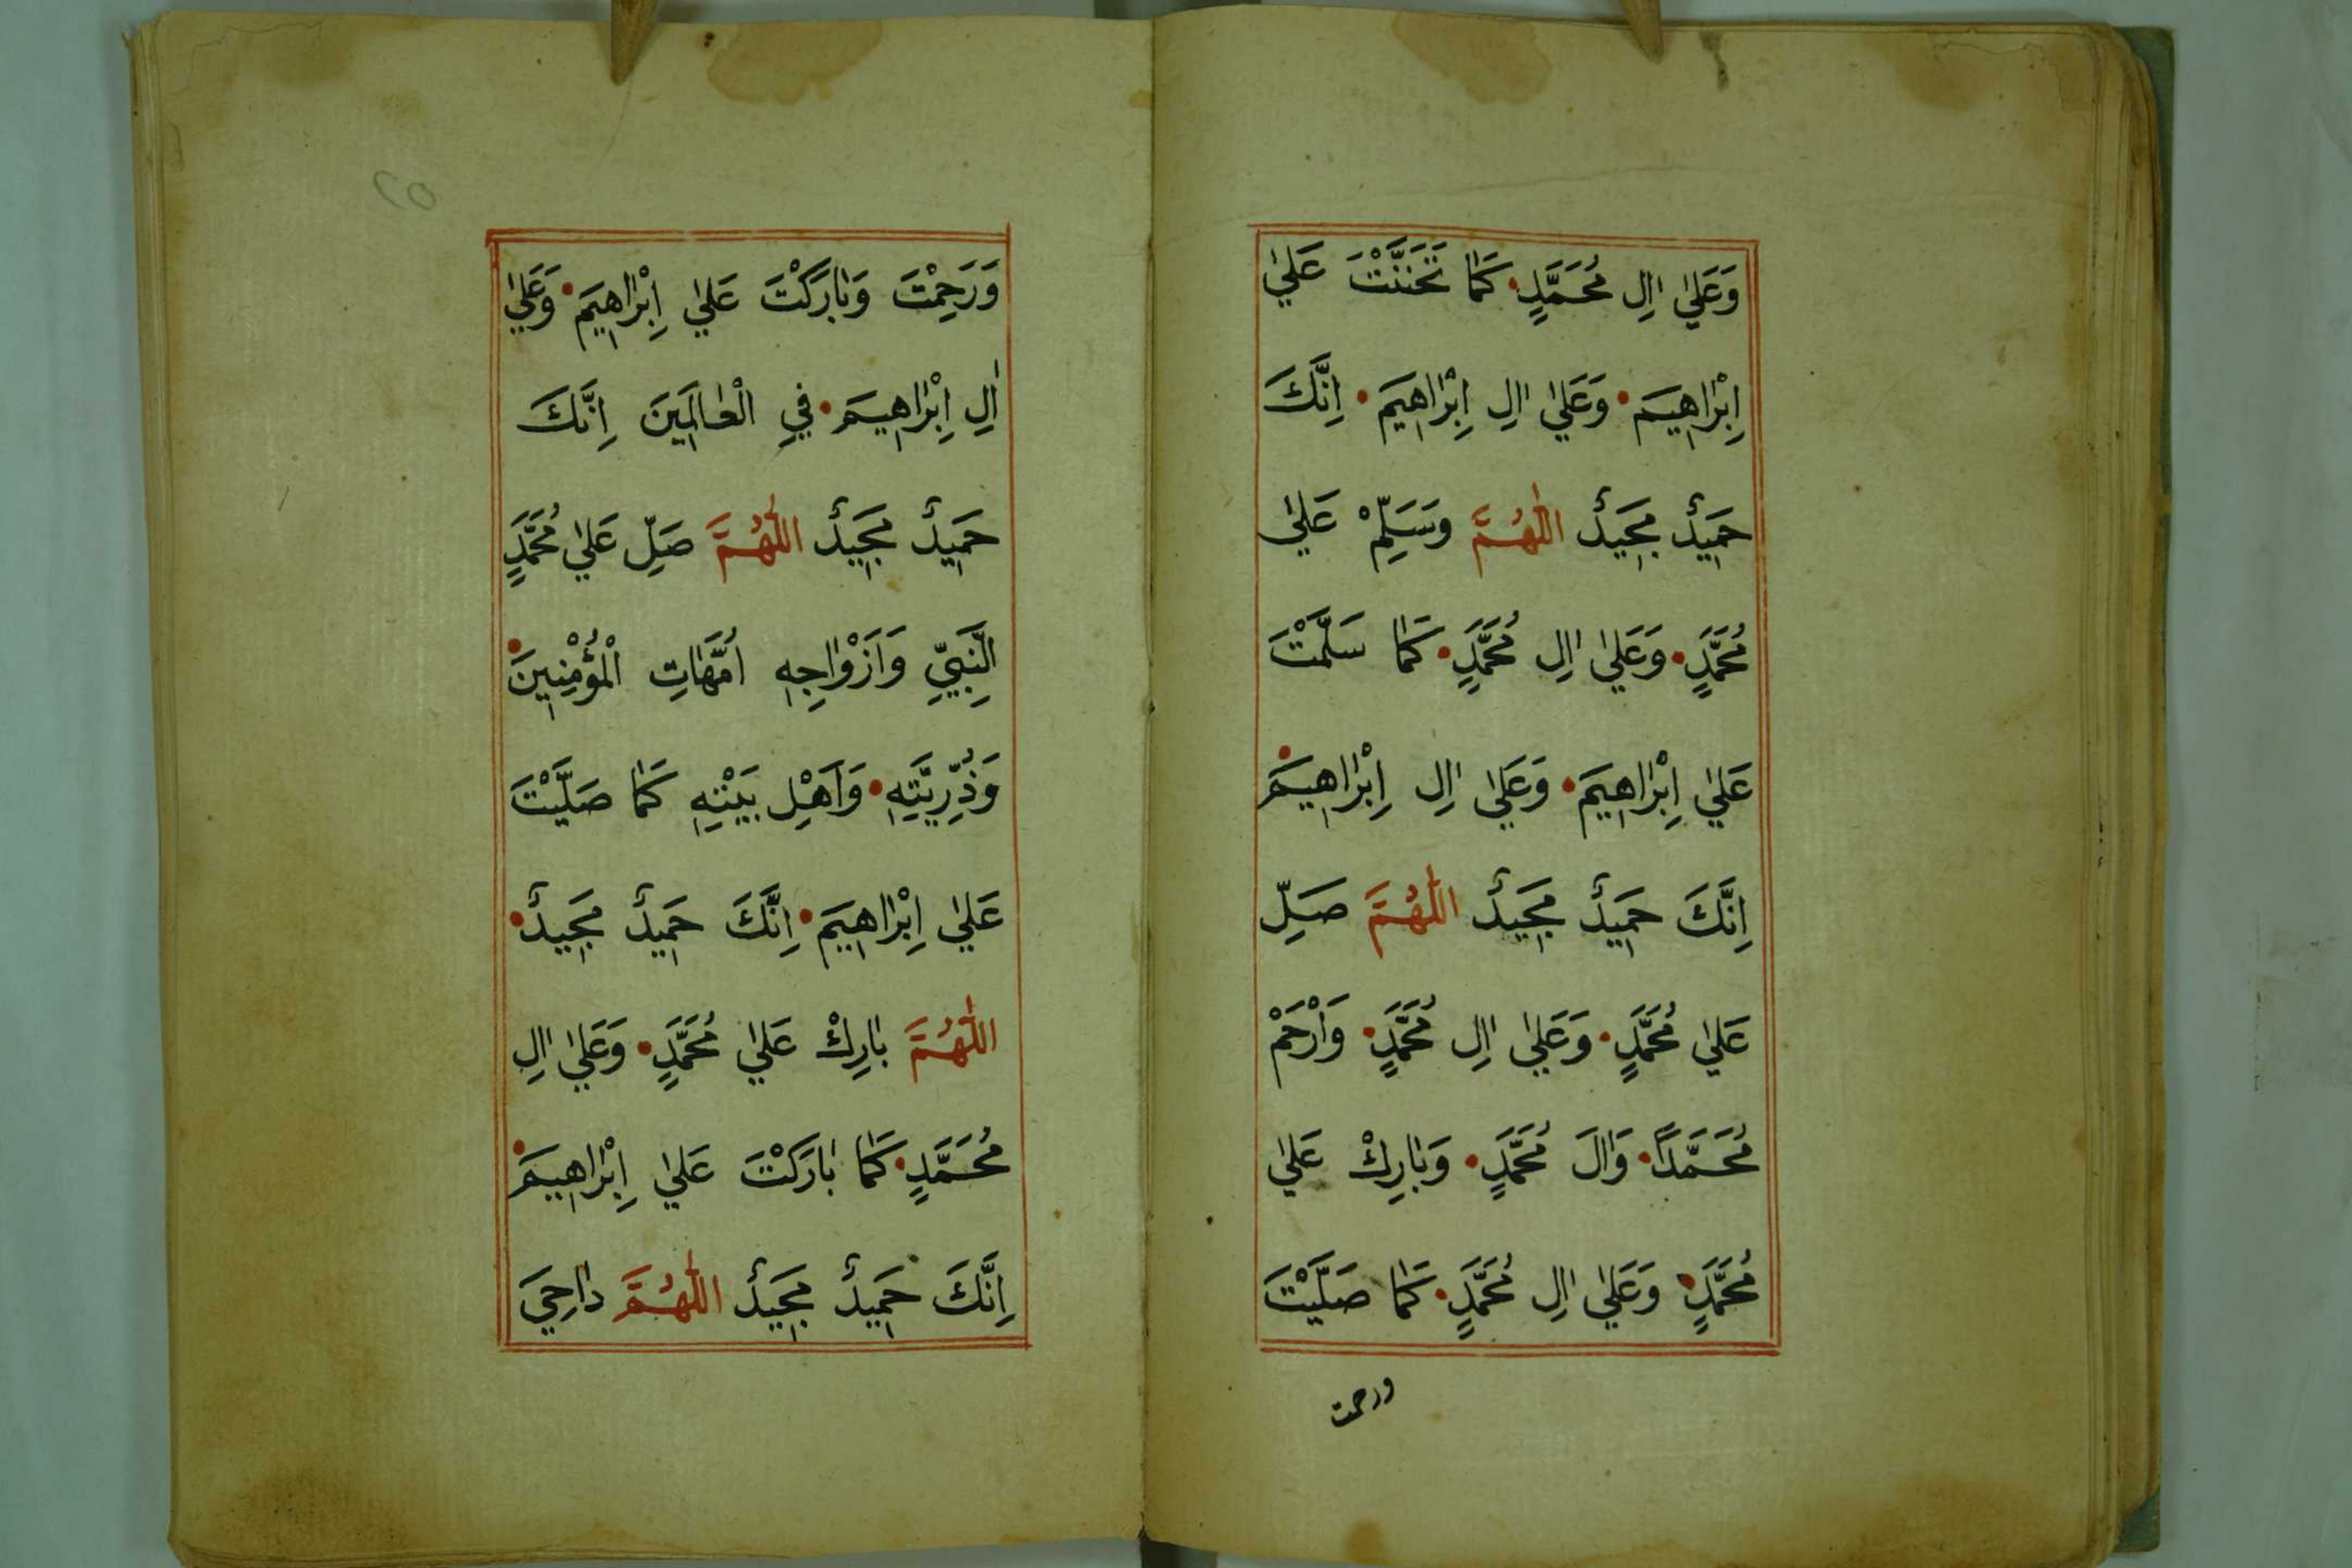 وَعَلٰي اٰلِ مُحَمَّدٍ كَمَا تَحَنَّنْتَ عَلٰي
اِبْرَاهِيمَ وَعَلٰي اٰلِ اِبْرَاهِيمَ اِنَّكَ
حَمِيدٌ مَجِيدٌ اَللّٰهُمَّ وَسَلِّمْ عَلٰي
مُحَمَّدٍ وَعَلٰي اٰلِ مُحَمَّدٍ كَمَا سَلَّمْتَ
عَلٰي اِبْرَاهِيمَ وَعَلٰي اٰلِ اِبْرَاهِيمَ
اِنَّكَ حَمِيدٌ مَجِيدٌ اَللّٰهُمَّ صَلِّ
عَلٰي مُحَمَّدٍ وَعَلٰي اٰلِ مُحَمَّدٍ وَارْحَمْ
مُحَمَّدًا وَاٰلَ مُحَمَّدٍ وَبَارِكْ عَلٰي
مُحَمَّدٍ وَعَلٰي اٰلِ مُحَمَّدٍ كَمَا صَلَّيْتَ
ورحمت
٢٥
وَرَحِمْتَ وَبَارَكْتَ عَلٰي اِبْرَاهِيمَ وَعَلٰي
اٰلِ اِبْرَاهِيمَ فِي الْعَالَمِينَ اِنَّكَ
حَمِيدٌ مَجِيدٌ اَللّٰهُمَّ صَلِّ عَلٰي مُحَمَّدٍ
اَلنَّبِيِّ وَاَزْوَاجِهِ اُمَّهَاتِ الْمُؤْمِنِينَ
وَذُرِّيَّتِهِ وَاَهْلِ بَيْتِهِ كَمَا صَلَّيْتَ
عَلٰي اِبْرَاهِيمَ اِنَّكَ حَمِيدٌ مَجِيدٌ
اَللّٰهُمَّ بَارِكْ عَلٰي مُحَمَّدٍ وَعَلٰي اٰلِ
مُحَمَّدٍ كَمَا بَارَكْتَ عَلٰي اِبْرَاهِيمَ
اِنَّكَ حَمِيدٌ مَجِيدٌ اَللّٰهُمَّ دَاحِيَ